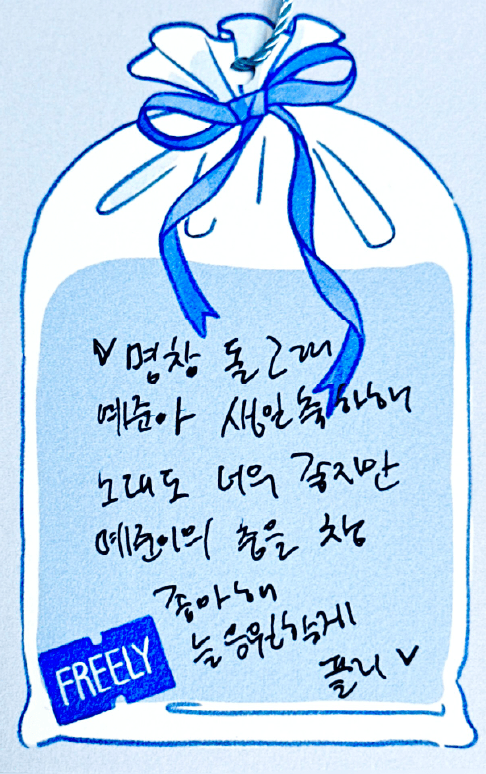 ♥ 명창 돌고래
예준아 생일축하해
노래도 너무 좋지만
예준이의 춤을 참
좋아해
늘 응원할게
플리 ♥
FREELY